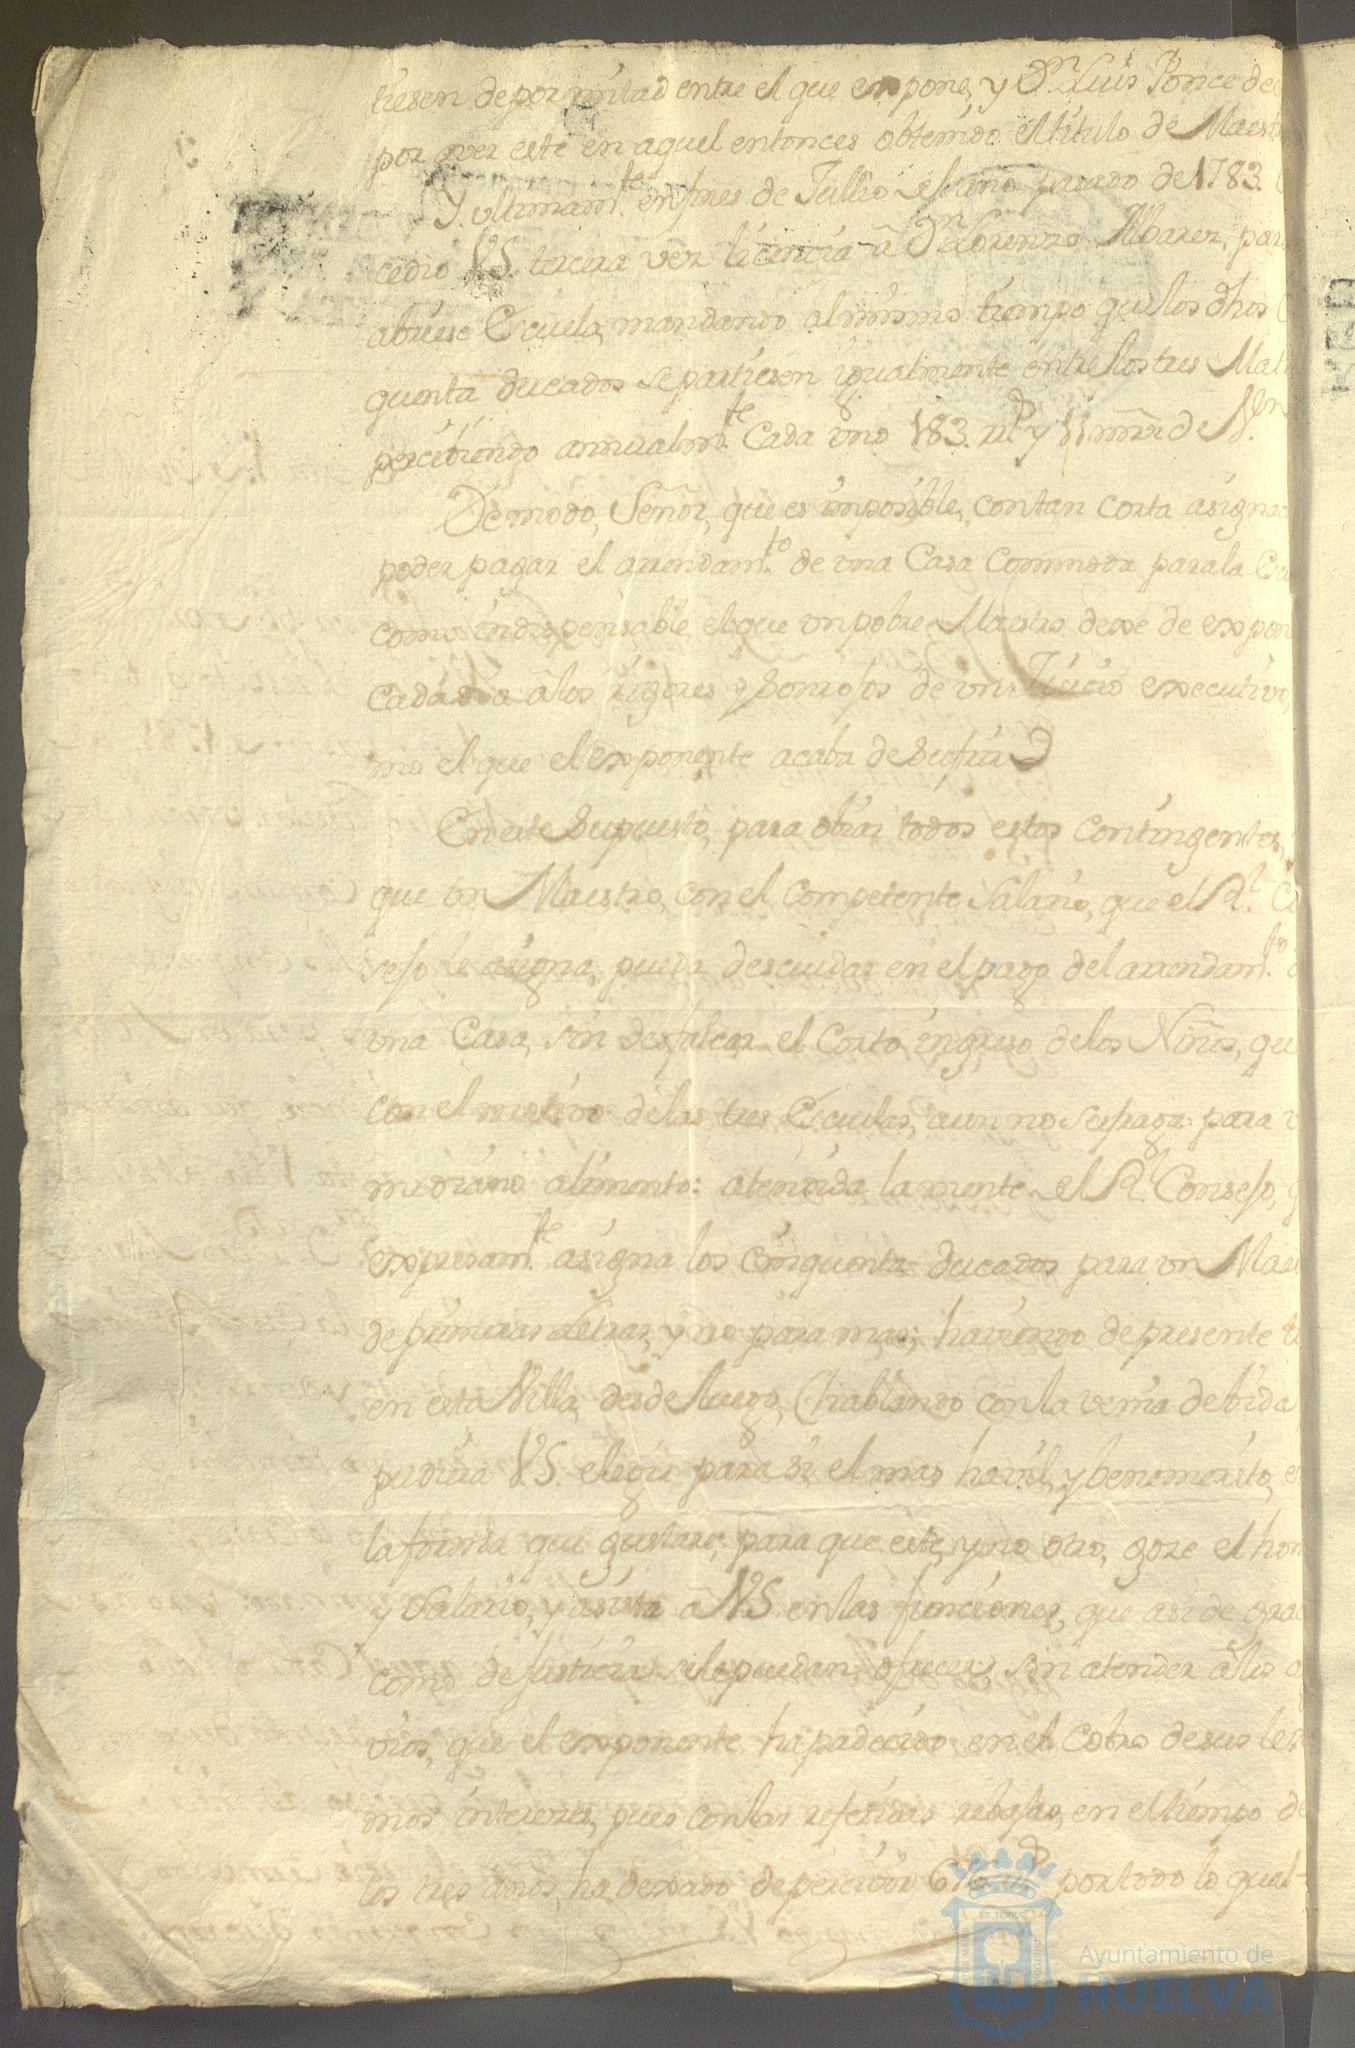 tiesen de por mitad entre el que expone, y Dn. Luis Ponce de
por aver este en aquel entonces obtenido el titulo de Maest
Y ultimamte. en mes de Jullio el año pasado de 1783.
cedio VS. tercera vez licencia â Dn Lorenzo Albarez, par
abriese Escuela, mandando al mismo tiempo que los dhos
quenta ducados se partiesen igualmente entre los tres Ma
percibiendo annualmte. Cada uno 183. rs. y 11 mrs de Vn.
De modo, Señor, que es imposible, con tan corta asigna
poder pagar el arrendamto. de una Casa Commoda para la Es
como indispensable, el que un pobre Maestro dexe de expon
cada dia â los rigores y sonrojos de un Juicio executivo,
mo el que el exponente acaba de sufrir
En este supuesto, para obiar todos estos contingentes,
que un Maestro, con el competente Salario, que el Rl. Co
sejo le asigna, pueda descuidar en el pago del arrendamto.
una Casa, sin desfalcar el Corto ingreso de los Niños, qu
con el motivo de las tres Escuelas, aun no sufraga para
mediano alimento: atendida la mente el Rl. Consejo,
expresamte. asigna los cinquenta ducados para un Mae
de primeras letras, y no para mas; haviendo de presente t
en esta Villa, desde luego, (hablando con la venia debida
pudiera VS. elegir para si el mas havil, y benemerito, e
la forma que gustare; para que este, y no otro, goze el hon
y Salario, y asista â VS. en las funciones, que asi de gra
como de justicia se le puedan ofrecer; sin atender â los
vios, que el exponente ha padecido en el Cobro de sus le
mos intereses, pues con las referidas rebajas, en el tiempo de
los tres años, ha dexado de percibir rs. por todo lo qual
ET TERRÆ
Ayuntamiento de
HUELVA